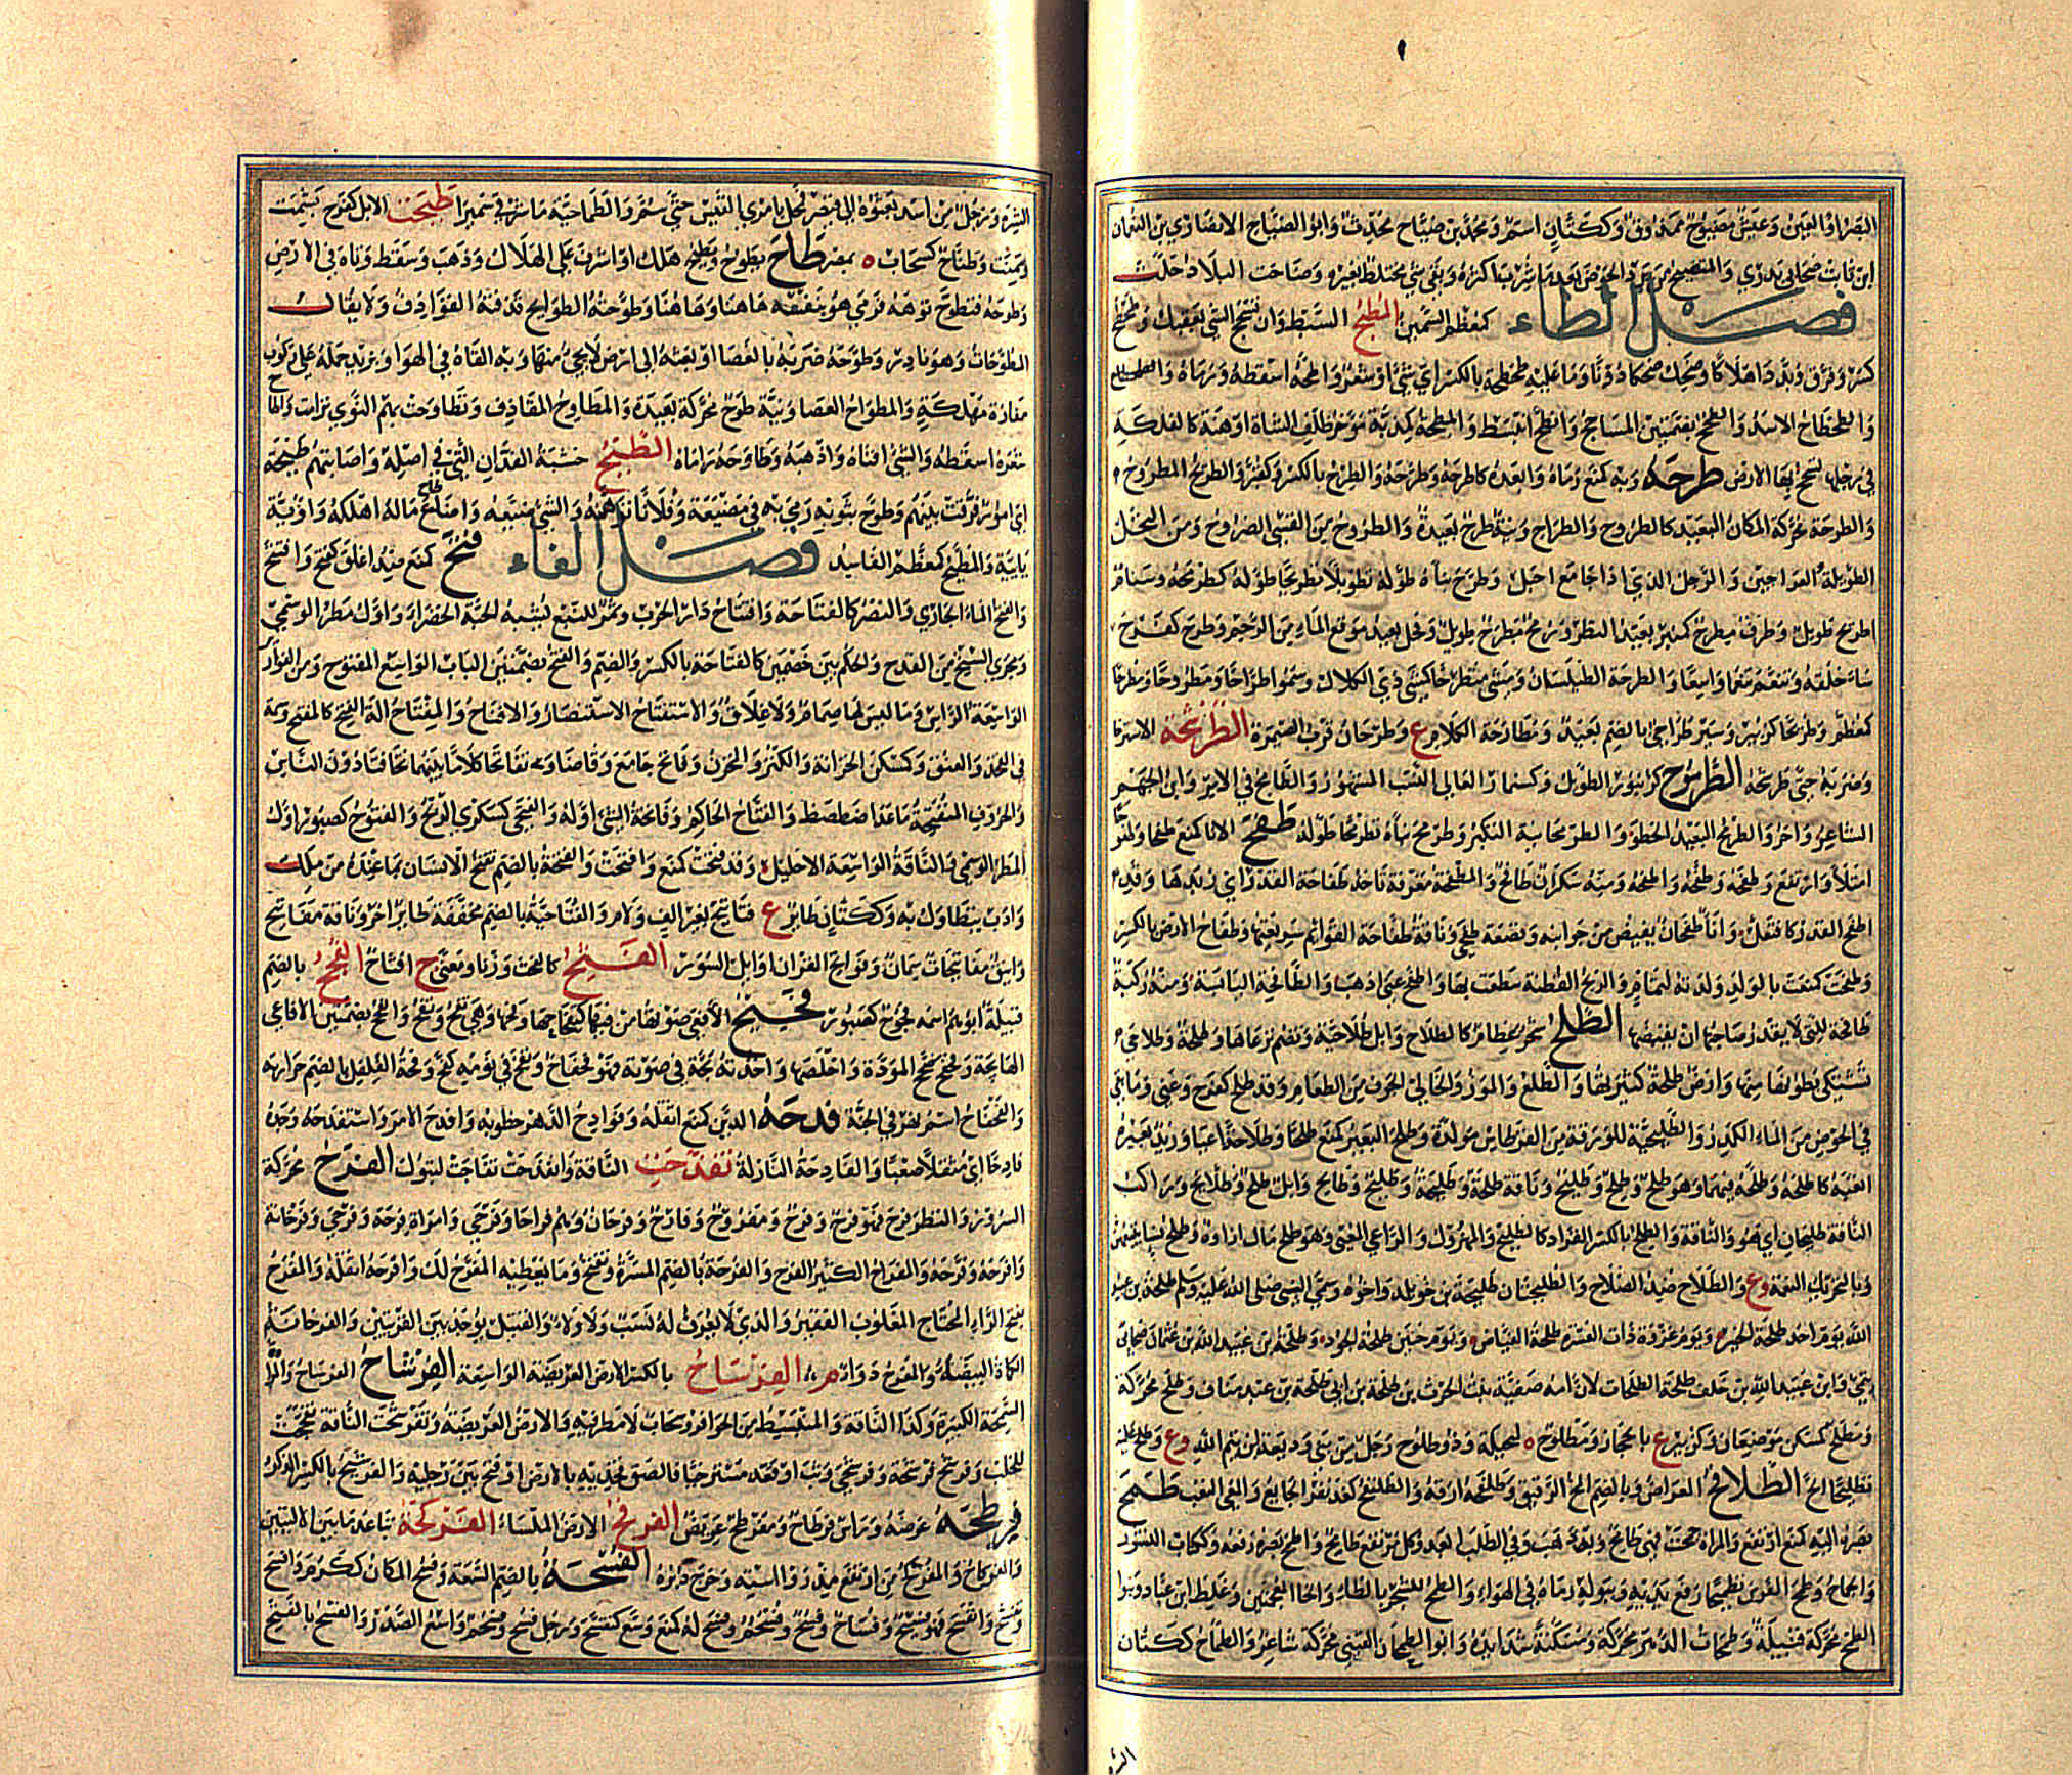 وضياح العين وعيش مضيوح ممذوق وككتان اسم ومحمد بن ضياح محدث وابو الضياح الانصاري بن النعمان
ابن ثابت صحابي بدري والمتضيح من يرد الحوض بعد ما شرب اكثره وبقي شي مختلط بغيره وضاحت البلاد خلت
فصل الطاء كمعظم السمين الطح البسط وان تسحج الشي بعقبك وطحطح
كسر وفرق وبدد اهلاكا وضحك ضحكا دونا وما عليه طحطحة بالكسر اي شي او شعر واطحه اسقطه ورماه
والطحطاح الاسد والطحح بضمتين المساحج وانطح انبسط والمطحة كمذبة مؤخر ظلف الشاة او هنة كالفلكة
في رجلها تسحج بها الارض طرحه وبه كمنع رماه وابعده كاطرحه وطرحه والطرح بالكسر وكقبر والطريح المطروح
والطرحة محركة المكان البعيد كالطروح والطراح ونية طرح بعيدة والطروح من القسي الضروح ومن النخل
الطويلة العراجين والرجل الذي اذا جامع احبل وطرح بناءه طوله تطويلا تطريحا طوله كطرمحه وسنام
اطريح طويل وطرف مطرح كمنبر بعيد النظر ورمح مطرح طويل وفحل بعيد موقع الماء من الرحم وطرح كفرح
ساء خلقه وتنعم تنعما واسعا والطرحة الطيلسان ومشى متطرحا كمشي ذي الكلال وسموا طراحا ومطروحا ومطرحا
كمعظم وطريحا كزبير وسير طراحي بالضم بعيد ومطارحة الكلام ع وطرحان قرب الصيمرة الطرشحة الاسترخا
وضربه حتى طرشحه الطرموح كزنبور الطويل وكسنمار العالي النسب المشهور والطامح في الامر وابن الجهم
الشاعر واخر والطرمح البعيد الخطو والطرمحانية التكبر وطرمح بناءه تطرمحا طوله طفح الاناء كمنع طفحا وطفوحا
امتلا وارتفع وطفحه وطفحه واطفحه ومنه سكران طافح والمطفحة مغرفة تاخذ طفاحة القدر اي زبدها وقد
اطفح القدر كافتعل واناء طفحان يفيض من جوانبه وقصعة طفحى وناقة طفاحة القوائم سريعتها وطفاح الارض بالكسر
وطفحت كمنعت بالولد ولدته لتمام والريح القطنة سطعت بها واطفح عني اذهب والطافحة اليابسة ومنه ركبة
طافحة للتي لا يقدر صاحبها ان يقبضها الطلح شجر عظام كالطلاح وابل طلاحية ويضم ترعاها وطلحة وطلاحى
تشتكي بطونها منها وارض طلحة كثيرتها والطلع والموز والخالي الجوف من الطعام وقد طلح كفرح وعني وما بقي
في الحوض من الماء الكدر والطلحية للورقة من القرطاس مولدة وطلح البعير كمنع طلحا وطلاحة اعيا وزيد بعيره
اتعبه كاطلحه وطلحه فيهما وهو طلح وطلح وطليح وناقة طلحة وطليحة وطليح وطالح وابل طلح وطلائح وراكب
الناقة طليحان اي هو والناقة والطلح بالكسر القراد كالطليح والمهزول والراعي المعيي وهو طلح مال ازاؤه وطلح نساء يتبعهن
وبالتحريك النعمة وع والطلاح ضد الصلاح والطليحتان طليحة بن خويلد واخوه وسمى النبي صلى الله عليه وسلم طلحة بن عبيد
الله يوم احد طلحة الخير ويوم غزوة ذات العشيرة طلحة الفياض ويوم حنين طلحة الجود وطلحة بن عبيد الله بن عثمان صحابي
تيمي وابن عبيد الله بن خلف طلحة الطلحات لان امه صفية بنت الحرث بن طلحة بن ابي طلحة بن عبد مناف وطلح محركة
ومطلح كمسكن موضعان وكزبير ع بالحجاز ومطلوح ه لبجيلة وذو طلوح رجل من بني وديعة بن تيم الله وع وطلح عليه
تطليحا الح الطلافح العراض وبالضم المخ الرقيق وطلفحه ارقه والطلنفح كغضنفر الجايع والمعي التعب طمح
بصره اليه كمنع ارتفع والمراة طمحت فهي طامح وبه ذهب وفي الطلب ابعد وكل مرتفع طامح واطمح بصره رفعه وككتاب النشوز
والجماح وطمح الفرس تطميحا رفع يديه وببوله رماه في الهواء والطمح للشجر بالظاء والخاء المعجمتين وغلط ابن عباد وبنو
الطمح محركة قبيلة وطمحات الدهر محركة ومسكنة شدايده وابو الطمحان القيني محركة شاعر والطماح ككتان
الشره ورجل من اسد بعثوه الى قيصر فمحل بامرئ القيس حتى سم والطماحية ماءة شرقي سميراء طنحت الابل كفرح بشمت
وسمنت وطناح كسحاب ه بمصر طاح يطوح ويطيح هلك او اشرف على الهلاك وذهب وسقط وتاه في الارض
وطوحه فتطوح توهه فرمى هو بنفسه هاهنا وهاهنا وطوحته الطوايح قذفته القواذف ولا يقال
المطوحات وهو نادر وطوحه ضربه بالعصا او بعثه الى ارض لا يجيء منها وبه القاه في الهواء وزيد حمله على ركوب
مفازة مهلكة والمطواح العصا ونية طوح محركة بعيدة والمطاوح المقاذف وتطاوحت بهم النوى ترامت واطاح
شعره اسقطه والشي افناه واذهبه وطاوحه راماه الطيح خشبة الفدان التي في اصله واصابتهم طيحة
اي امور فرقت بينهم وطوح بثوبه رمى به في مضيعة وفلانا توهه والشي ضيعه وامتاع ماله اهلكه واوية
يايية والمطيح كمعظم الفاسد فصل الفاء فتح كمنع ضد اغلق كفتح وافتتح
والفتح الماء الجاري والنصر كالفتاحة وافتتاح دار الحرب وثمر للنبع يشبه الحبة الخضراء واول مطر الوسمي
ومجرى السنخ من القدح والحكم بين خصمين كالفتاحة بالكسر والضم والفتح بضمتين الباب الواسع المفتوح ومن القوارير
الواسعة الراس وما ليس لها صمام ولا غلاف والاستفتاح الاستنصار والافتتاح والمفتاح الة الفتح كالمفتح وسمة
في الفخذ والعنق وكمسكن الخزانة والكنز والمخزن وفاتح جامع وقاضا وتفاتحا كلاما بينهما تخافتا دون الناس
والحروف المنفتحة ما عدا ضطصظ والفتاح الحاكم وفاتحة الشي اوله والفتحى كسكرى الريح والفتوح كصبور اول
المطر الوسمي والناقة الواسعة الاحليل وقد فتحت كمنع وافتحت والفتحة بالضم تفتح الانسان بما عنده من ملك
وادب يتطاول به وككتان طاير ع فتاتيح بغير الف ولام والفتاحية بالضم مخففة طاير اخر وناقة مفاتيح
واينق مفاتيحات سمان وفواتح القران اوايل السور الفثح كالفحث وزنا ومعنى ج افثاح الفجح بالضم
قبيلة ابوهم اسمه فجوح كصبور فحيح الافعى صوتها من فيها كتفحاحها وفحها وهي تفح وتفح والفحح بضمتين الافاعي
الهايجة وفحفح صحح المودة واخلصها واخذته بحة في صوته فهو فحفاح ونفخ في نومه كفح وفحة الفلفل بالضم حرارته
والفحفاح اسم نهر في الجنة فدحه الدين كمنع اثقله وفوادح الدهر خطوبه وافدح الامر واستفدحه وجده
فادحا اي مثقلا صعبا والفادحة النازلة تفذحت الناقة وانفذحت تفاجت لتبول الفرح محركة
السرور والبطر فرح فهو فرح وفروح ومفروح وفارح وفرحان وهم فراحى وفرحى وامراة فرحة وفرحى وفرحانة
وافرحه وفرحه والمفراح الكثير الفرح والفرحة بالضم المسرة وتفتح وما يعطيه المفرح لك وافرحه اثقله والمفرح
بفتح الراء المحتاج المغلوب الفقير والذي لا يعرف له نسب ولا ولاء والقتيل يوجد بين القريتين والفرحانة
الكماة البيضاء والمفرح دواء م الفرساح بالكسر الارض العريضة الواسعة الفرشاح الفرساح والمراة
السمجة الكبيرة وكذا الناقة والمنبسط من الحوافر وسحاب لا مطر فيه والارض العريضة وتفرشحت الناقة تفحجت
للحلب وفرشح فرشحة وفرشحى وثب او قعد مسترخيا فالصق فخذيه بالارض او فتح بين رجليه والفرشيح بالكسر الذكر
فرطحه عرضه وراس فرطاح ومفرطح عريض الفرقح الارض الملساء الفركحة تباعد ما بين الاليتين
والفركاح والمفركح من ارتفع مذروا استه وخرج دبره الفسحة بالضم السعة وفسح المكان ككرم وافسح
وتفسح وانفسح فهو فسيح وفساح وفسح وفسحم وفسح له كمنع وسع كتفسح ورجل فسح وفسحم واسع الصدر والفسح بالفتح
الشره